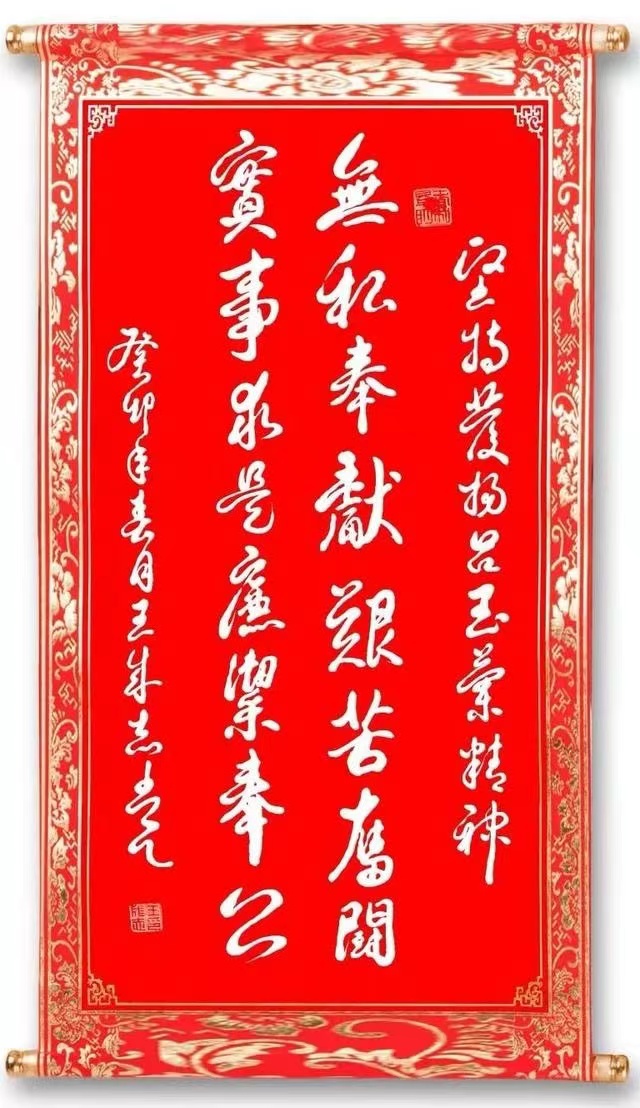 坚持發扬吕玉蘭精神
無私奉獻艱苦奮闘
實事求是廉潔奉公
癸卯年春月王成志書